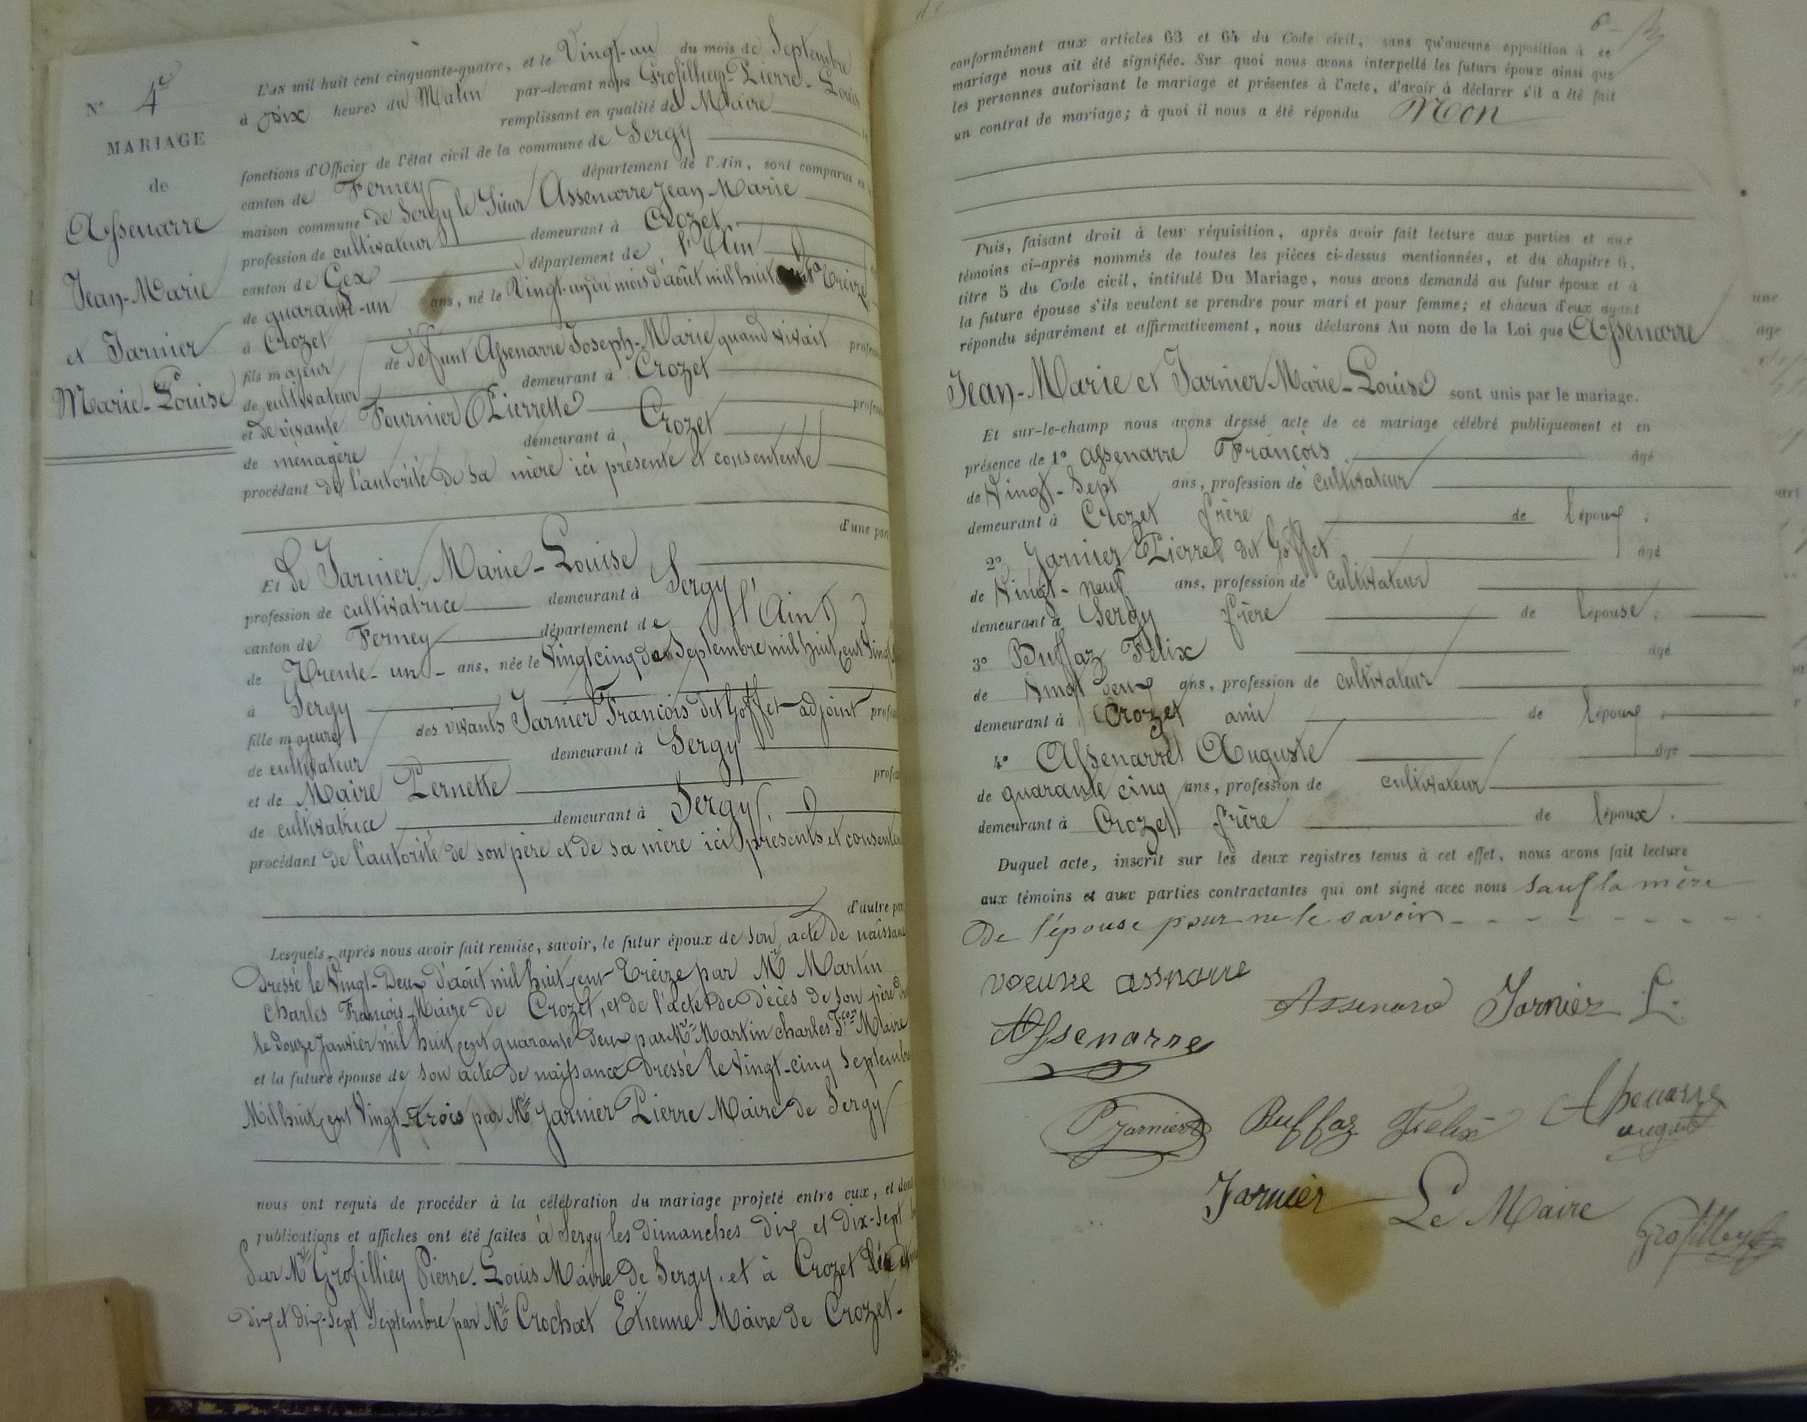 N° 4e
MARIAGE
de
Assenarre
Jean-Marie
et Jarnier
Marie-Louise
L'an mil huit cent cinquante-quatre, et le Vingt-un du mois de Septembre
à Dix heures du Matin par-devant nous Grosfilliey Pierre-Louis
remplissant en qualité de Maire
fonctions d'Officier de l'état civil de la commune de Sergy
canton de Ferney département de l'Ain, sont comparus en
maison commune de Sergy le Sieur Assenarre Jean-Marie
profession de cultivateur demeurant à Crozet
canton de Gex département de l'Ain
de quarant-un ans, né le Vingt-un du mois d'août mil huit cent Treize
à Crozet
fils majeur de défunt Assenarre Joseph-Marie quand vivait
de cultivateur demeurant à Crozet
et de vivante Fournier Pierrette
de menagère demeurant à Crozet
procédant de l'autorité de sa mère ici présente et consentente
d'une par
Et De Jarnier Marie-Louise
profession de cultivatrice demeurant à Sergy
canton de Ferney département de l'Ain
de Trente-un ans, née le Vingt cinq de Septembre mil huit cent Vingt
à Sergy
fille majeure des vivants Jarnier François dit Goffet adjoint
de cultivateur demeurant à Sergy
et de Maire Pernette
de cultivatrice demeurant à Sergy
procédant de l'autorité de son père et de sa mère ici présents et consenten
d'autre par
Lesquels, après nous avoir fait remise, savoir, le futur époux de son acte de naissance
Dressé le Vingt-Deux d'août mil huit cent Treize par Mr Martin
Charles François Maire de Crozet, et de l'acte de décès de son père
le Douze Janvier mil huit cent quarante Deux par Mr Martin Charles Fçois Maire
et la future épouse de son acte de naissance Dressé le Vingt-cinq Septembre
Mil huit cent Vingt-Trois par Mr Jarnier Pierre Maire de Sergy
nous ont requis de procéder à la célébration du mariage projeté entre eux, et dont
publications et affiches ont été faites à Sergy les dimanches dix et dix-sept
Par Mr Grosfilliey Pierre-Louis Maire de Sergy. et à Crozet
dix et dix-sept Septembre par Mr Crochat Etienne Maire de Crozet-
conformément aux articles 63 et 64 du Code civil, sans qu'aucune opposition à ce
mariage nous ait été signifiée. Sur quoi nous avons interpellé les futurs époux ainsi que
les personnes autorisant le mariage et présentes à l'acte, d'avoir à déclarer s'il a été fait
un contrat de mariage; à quoi il nous a été répondu Non
Puis, faisant droit à leur réquisition, après avoir fait lecture aux parties et aux
témoins ci-après nommés de toutes les pièces ci-dessus mentionnées, et du chapitre 6,
titre 5 du Code civil, intitulé Du Mariage, nous avons demandé au futur époux et à
la future épouse s'ils veulent se prendre pour mari et pour femme; et chacun d'eux ayant
répondu séparément et affirmativement, nous déclarons Au nom de la Loi que Assenarre
Jean-Marie et Jarnier Marie-Louise sont unis par le mariage.
Et sur-le-champ nous avons dressé acte de ce mariage célébré publiquement et en
présence de 1° Assenarre François âgé
de Vingt-Sept ans, profession de cultivateur
demeurant à Crozet frère de l'époux.
2° Jarnier Pierre dit Goffet âgé
de Vingt-neuf ans, profession de cultivateur
demeurant à Sergy frère de l'épouse.
3° Buffaz Félix âgé
de Vingt deux ans, profession de cultivateur
demeurant à Crozet ami de l'époux.
4° Assenarre Auguste âgé
de quarante cinq ans, profession de cultivateur
demeurant à Crozet frère de l'époux.
Duquel acte, inscrit sur les deux registres tenus à cet effet, nous avons fait lecture
aux témoins et aux parties contractantes qui ont signé avec nous Sauf la mère
De l'épouse pour ne le savoir
voeuve assnarre
Assenard Jarnier L.
Assenarre
P Jarnier Buffaz Felix Assenarre
august
Jarnier Le Maire
Grosfilley